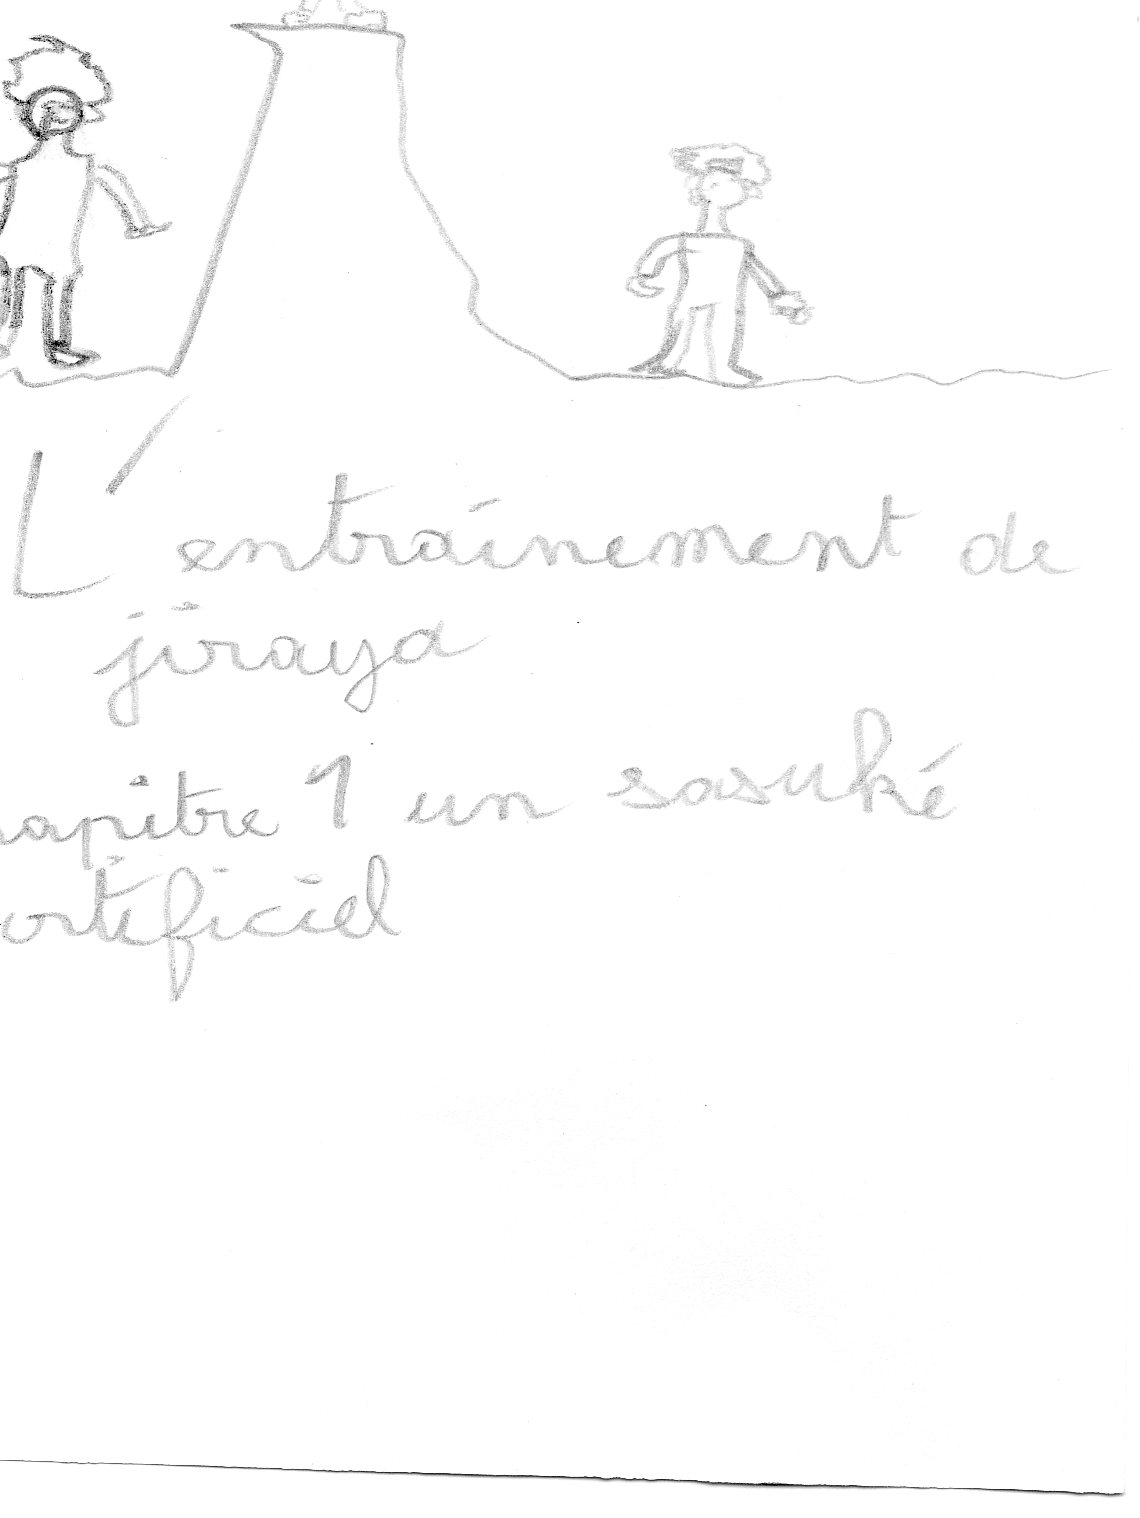 L'entraînement de
jiraya
hapitre 1 un sasuké
artificiel